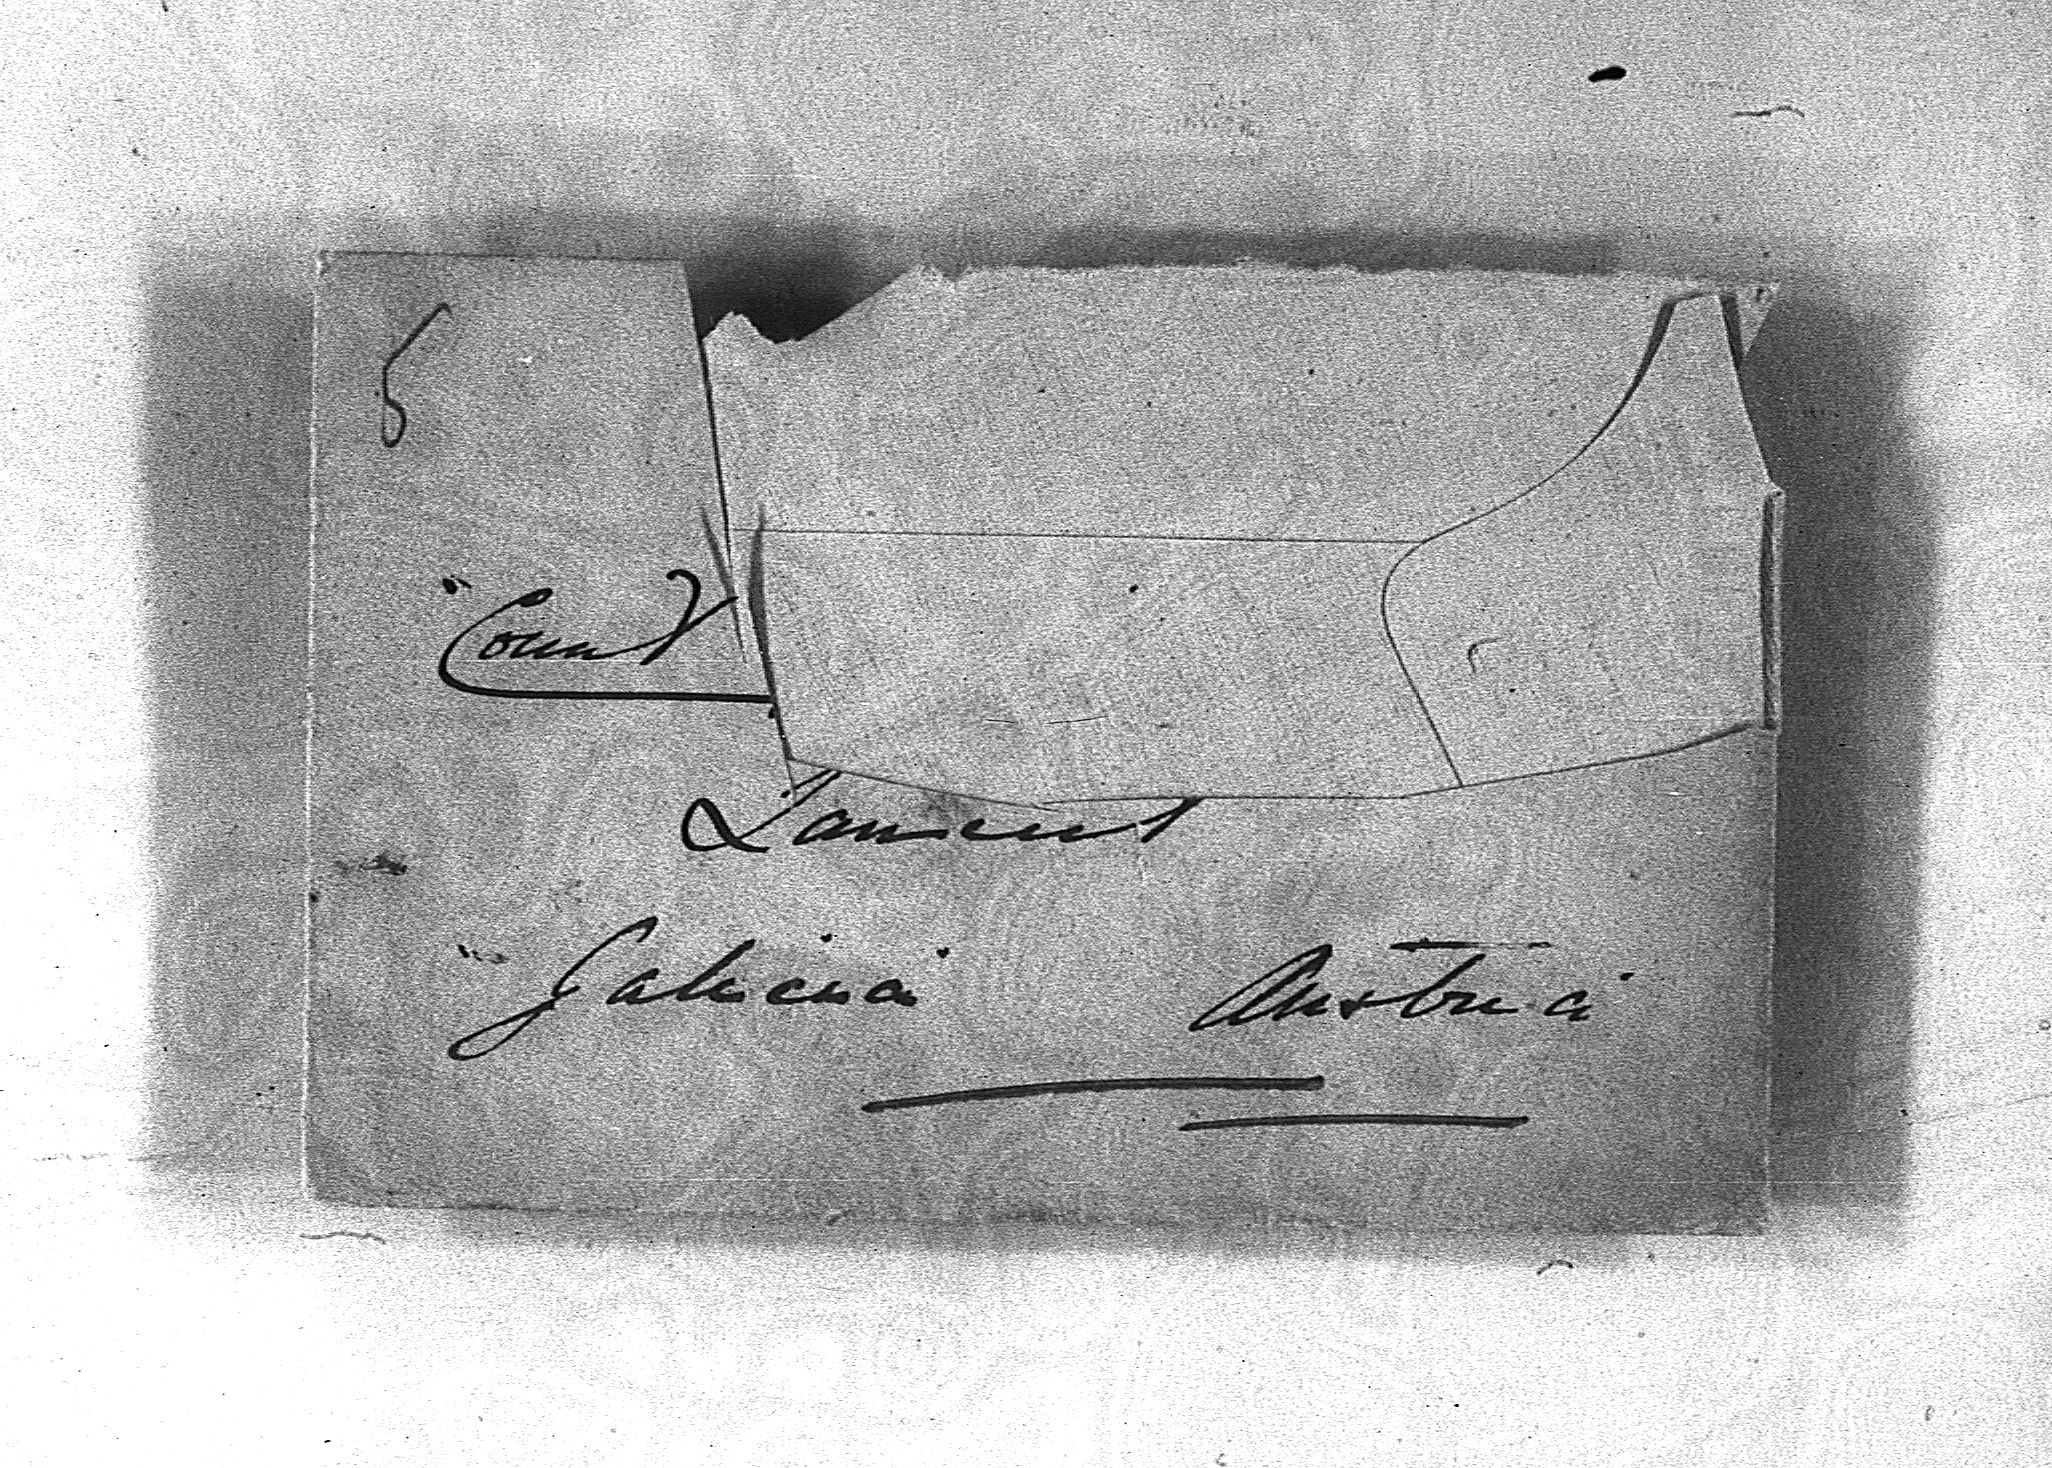 "Count
Lanscut
"Galicia" Austria